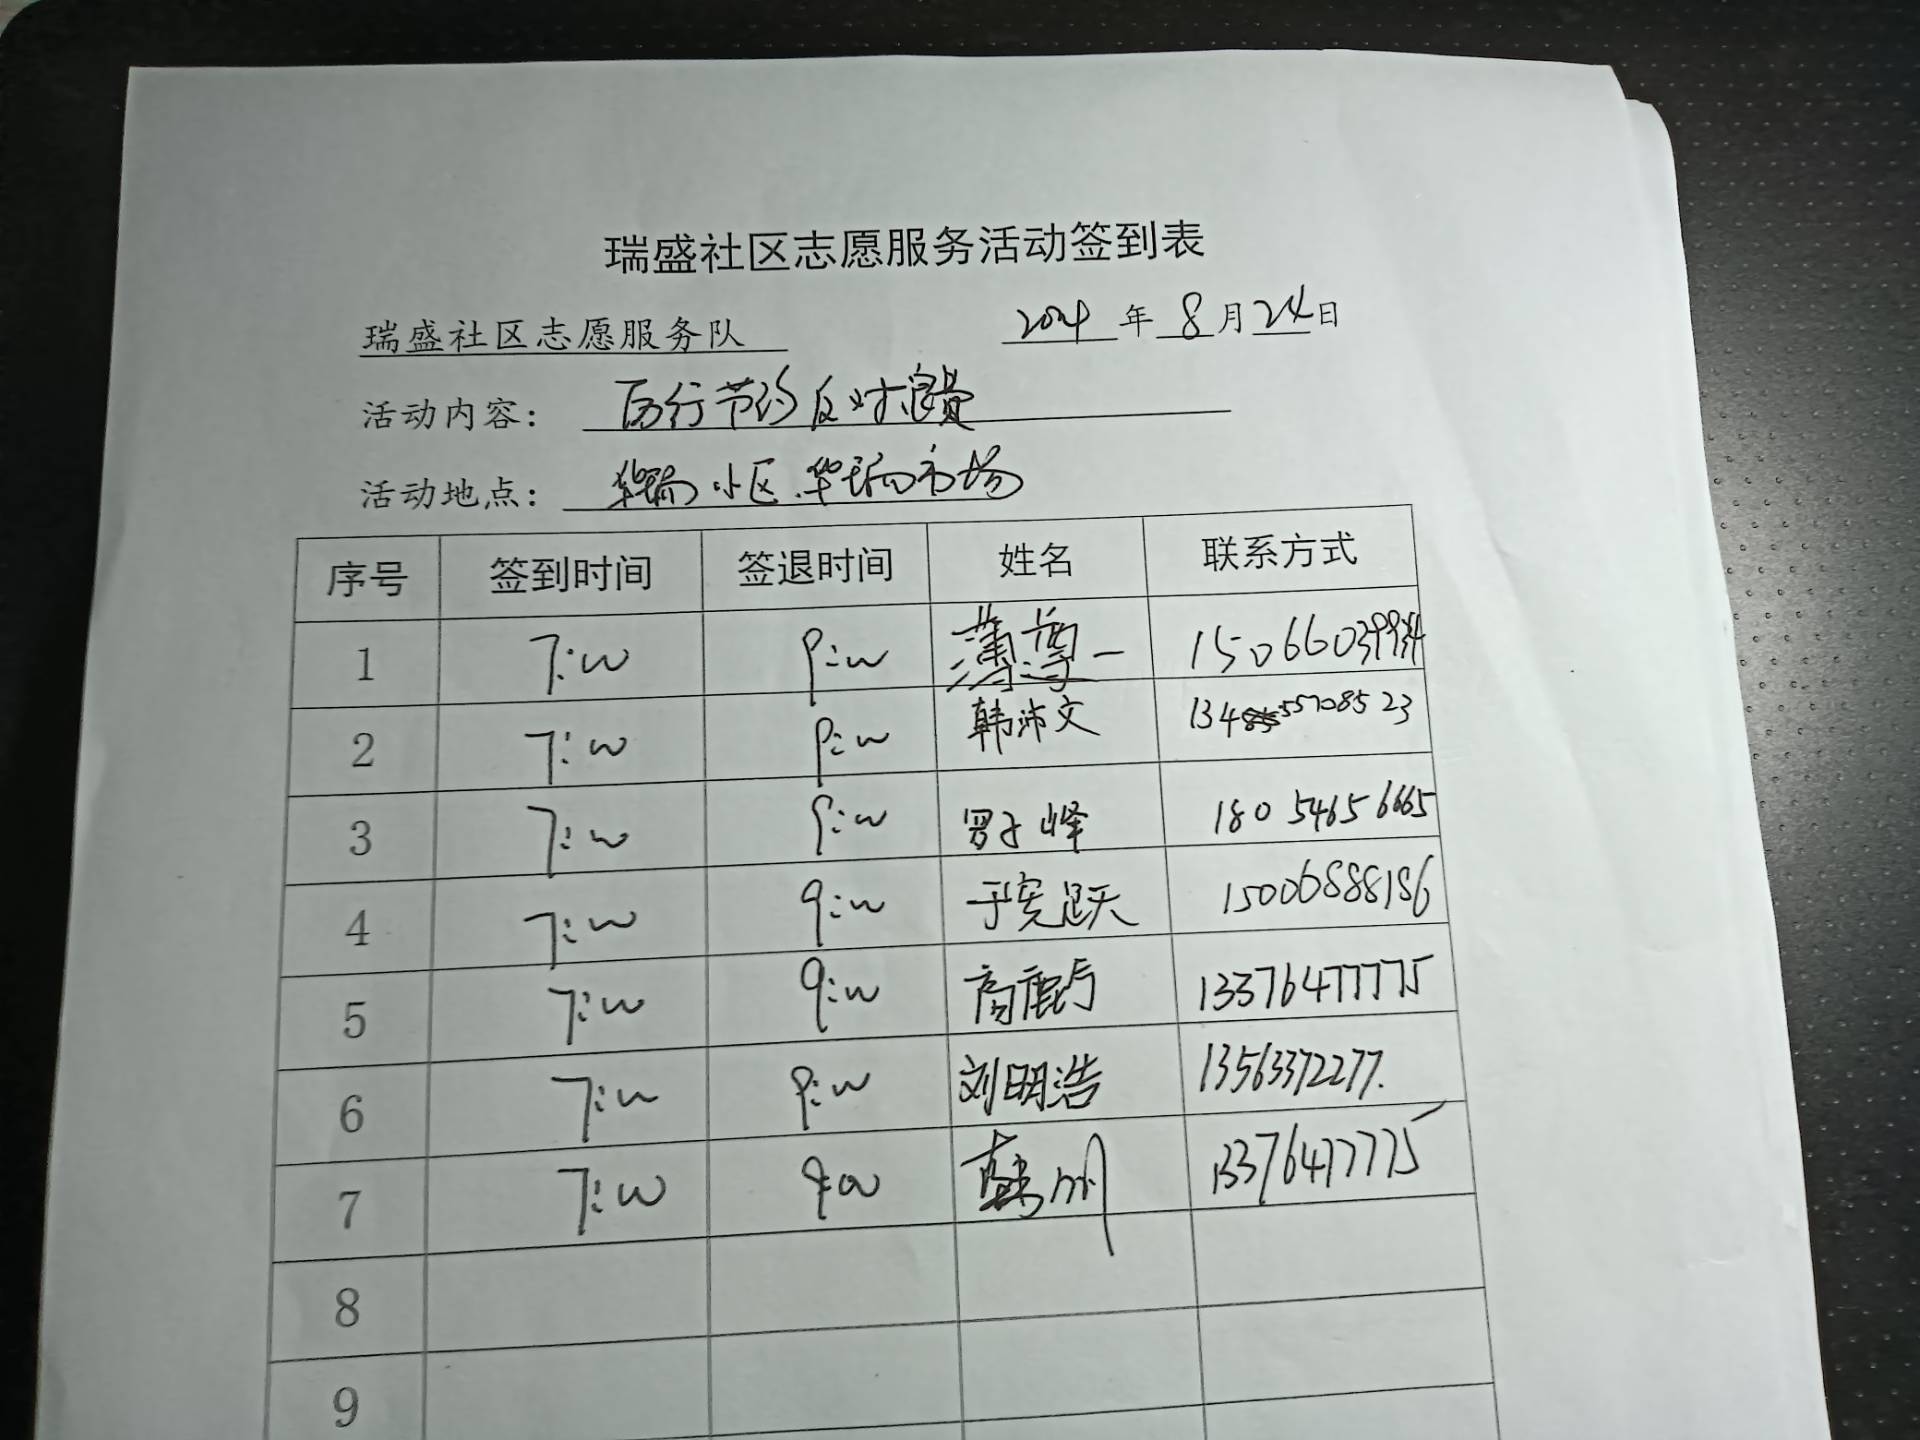 瑞盛社区志愿服务活动签到表
瑞盛社区志愿服务队 2024 年 8 月 24 日
活动内容： 厉行节约 反对浪费
活动地点： 华瑞小区、华瑞市场
序号 签到时间 签退时间 姓名 联系方式
1 7:00 9:00 薄尊一
2 7:00 9:00 韩沛文 13455708523
3 7:00 9:00 罗子峰 18054656665
4 7:00 9:00 于宪跃 15006888186
5 7:00 9:00 13376477775
6 7:00 9:00 刘明浩 13563372277.
7 7:00 9:00 13376477775
8
9